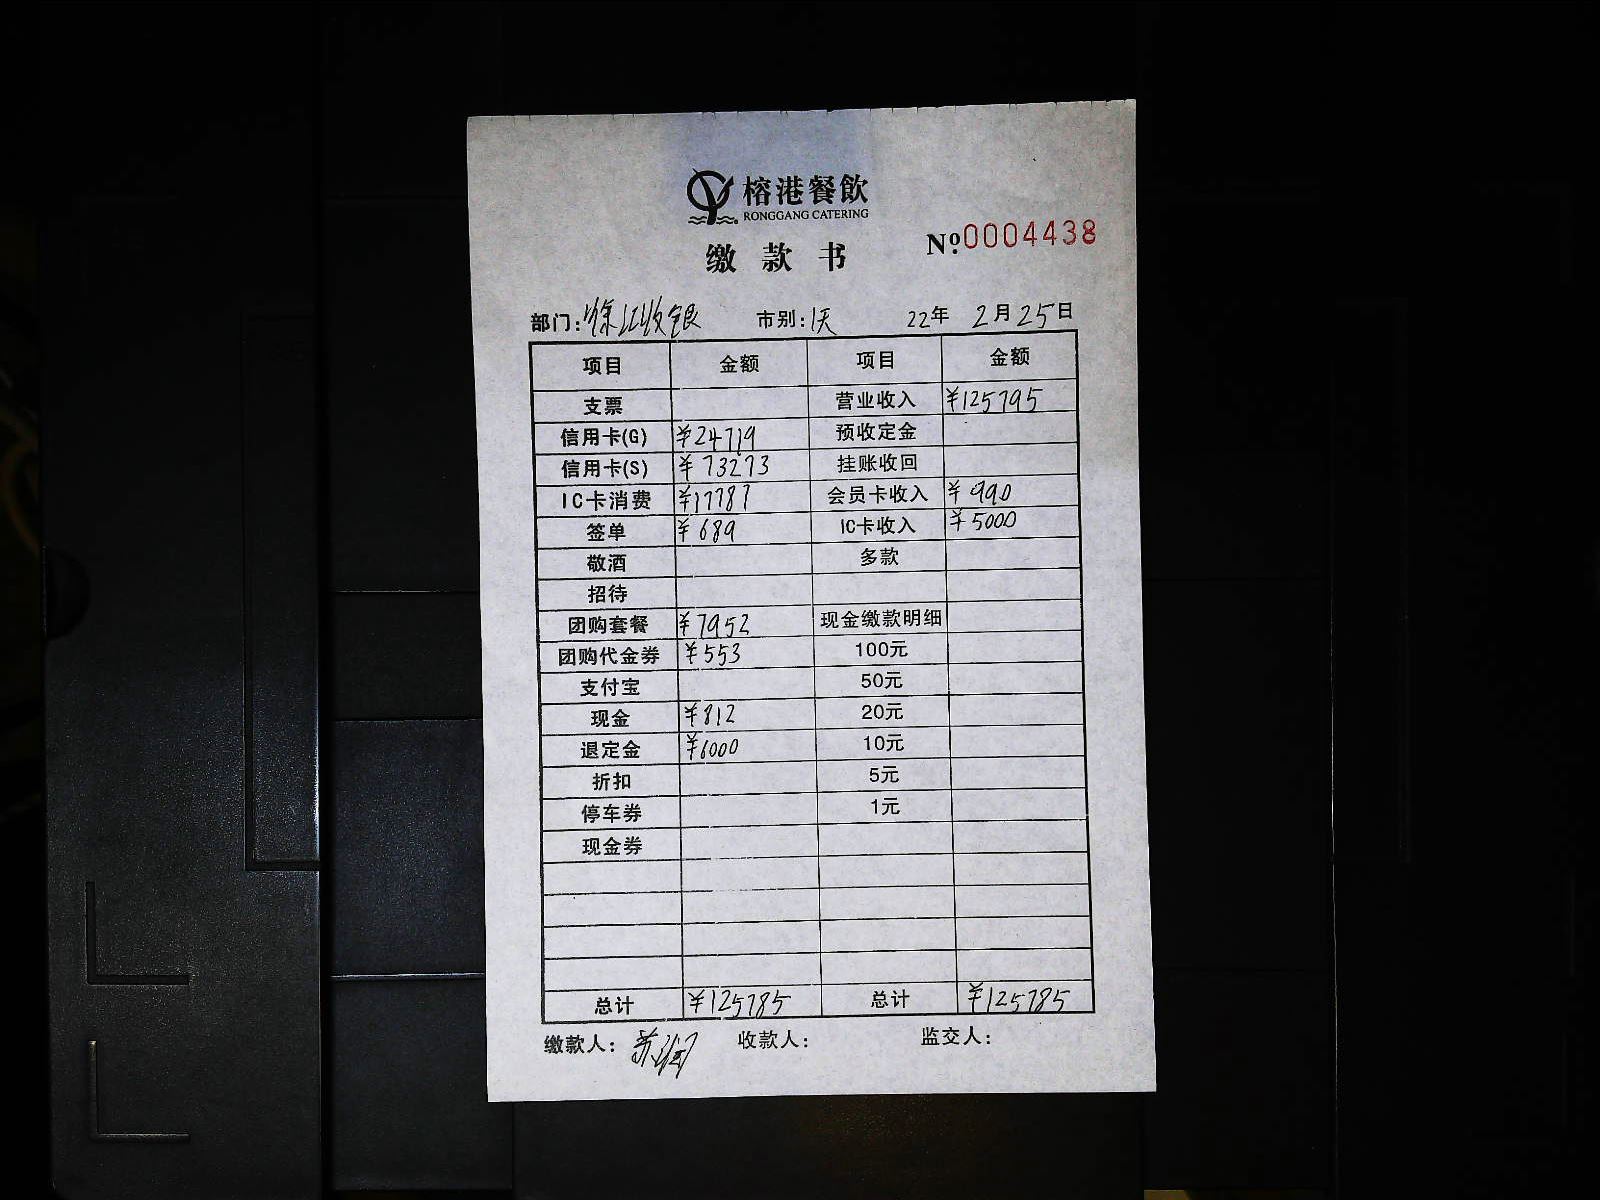 榕港餐飲
RONGGANG CATERING
缴款书 №0004438
部门:徐汇收银 市别:1天 22年 2月25日
项目 金额 项目 金额
支票 营业收入 ¥125795
信用卡(G) ¥24719 预收定金
信用卡(S) ¥73273 挂账收回
IC卡消费 ¥17787 会员卡收入 ¥990
签单 ¥689 IC卡收入 ¥5000
敬酒 多款
招待
团购套餐 ¥7952 现金缴款明细
团购代金券 ¥553 100元
支付宝 50元
现金 ¥812 20元
退定金 ¥6000 10元
折扣 5元
停车券 1元
现金券
总计 ¥125785 总计 ¥125785
缴款人: 收款人: 监交人: